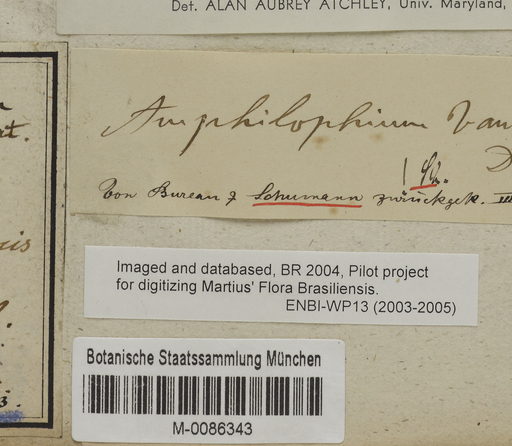 Det. ALAN AUBREY ATCHLEY, Univ. Maryland,
Amphilophium Vau
Von Bureau & Schumann zurückgek. III
Imaged and databased, BR 2004, Pilot project
for digitizing Martius' Flora Brasiliensis.
ENBI-WP13 (2003-2005)
Botanische Staatssammlung München
M-0086343